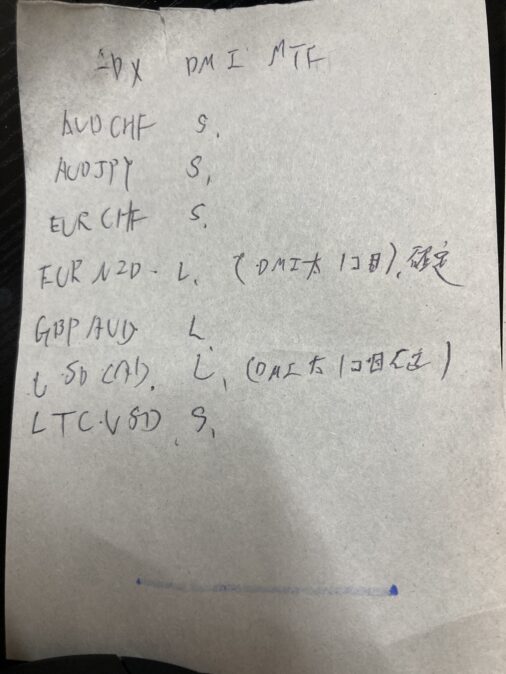 ADX DMI MTF
AUDCHF S.
AUDJPY S,
EURCHF S.
EURNZD - L. (DMI太 1コ目). 確定
GBPAUD L.
USDCAD. L, (DMI太 1コ目確定)
LTC.USD S,